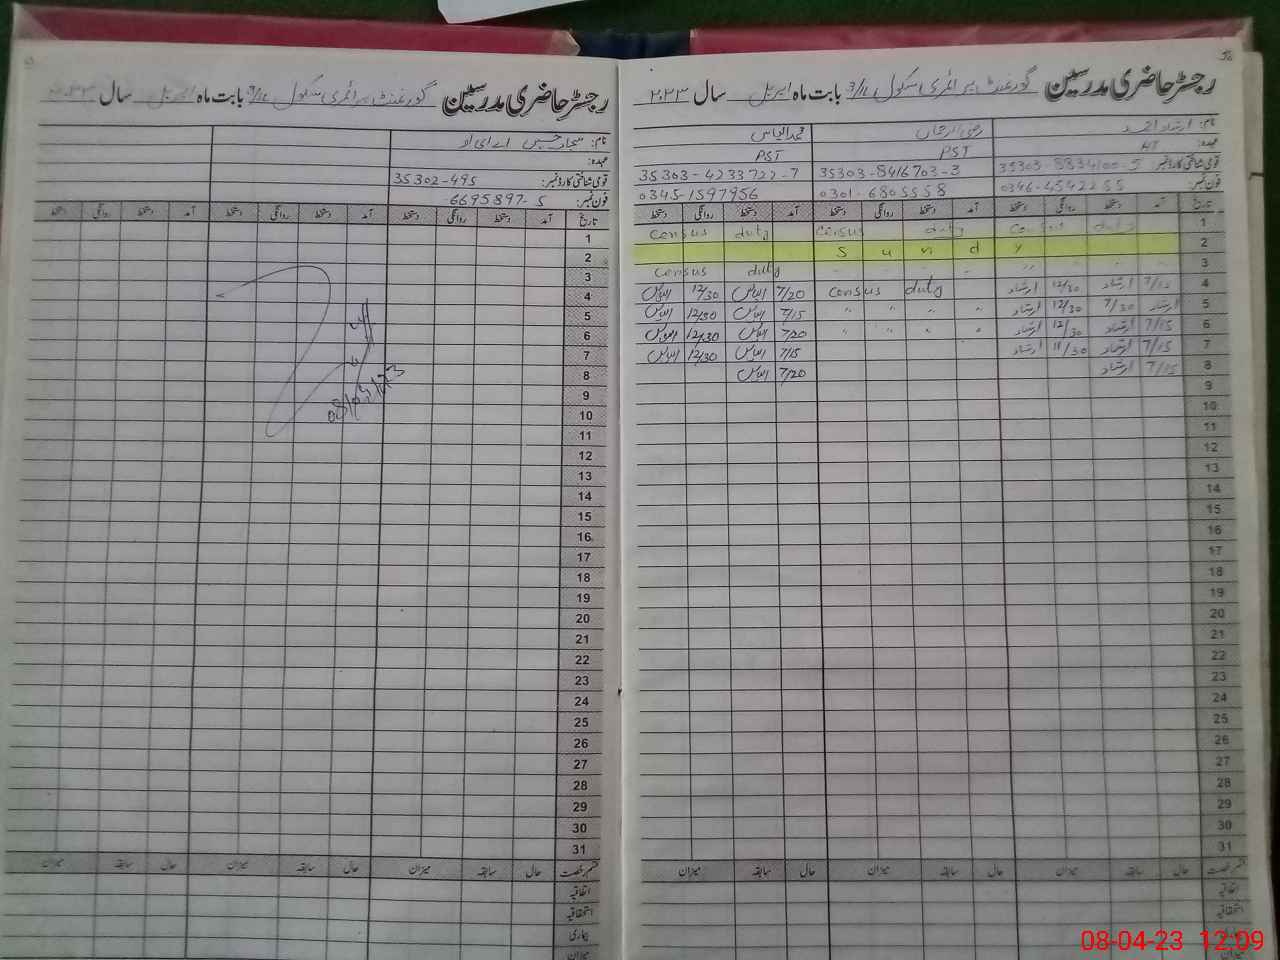 رجسٹر حاضری مدرسین گورنمنٹ پرائمری سکول 3/1L بابت ماہ اپریل سال ۲۰۲۳
نام: ارشاد احمد محمد الیاس
عہدہ: HT PST PST
قومی شناختی کارڈ نمبر: 35303-8834100-5 35303-8416703-3 35303-4233722-7
فون نمبر: 0346-4542255 0301-6805558 0345-1597956
تاریخ آمد دستخط روانگی دستخط آمد دستخط روانگی دستخط آمد دستخط روانگی دستخط
1 census duty census duty census duty
2 Sundy
3 " " " " " " census duty
4 7/15 ارشاد 12/30 ارشاد census duty 7/20 الیاس 12/30 الیاس
5 ارشاد 7/30 12/30 ارشاد " " " " 7/15 الیاس 12/30 الیاس
6 7/15 ارشاد 12/30 ارشاد " " " " 7/20 الیاس 12/30 الیاس
7 7/15 ارشاد 11/30 ارشاد 7/15 الیاس 12/30 الیاس
8 7/15 ارشاد 7/20 الیاس
9
10
11
12
13
14
15
16
17
18
19
20
21
22
23
24
25
26
27
28
29
30
31
قسم رخصت حال سابقہ میزان حال سابقہ میزان حال سابقہ میزان
اتفاقیہ
استحقاقیہ
بیماری
میزان
رجسٹر حاضری مدرسین گورنمنٹ پرائمری سکول بابت ماہ اپریل سال
نام: سجاد حسین اے ای او
عہدہ:
قومی شناختی کارڈ نمبر: 35302-495
فون نمبر: 6695897-5
تاریخ آمد دستخط روانگی دستخط آمد دستخط روانگی دستخط آمد دستخط روانگی دستخط
1
2
3
4
5
6
7
8
9
10
11
12
13
14
15
16
17
18
19
20
21
22
23
24
25
26
27
28
29
30
31
قسم رخصت حال سابقہ میزان حال سابقہ میزان حال سابقہ میزان
اتفاقیہ
استحقاقیہ
بیماری
میزان
08-04-23 12:09